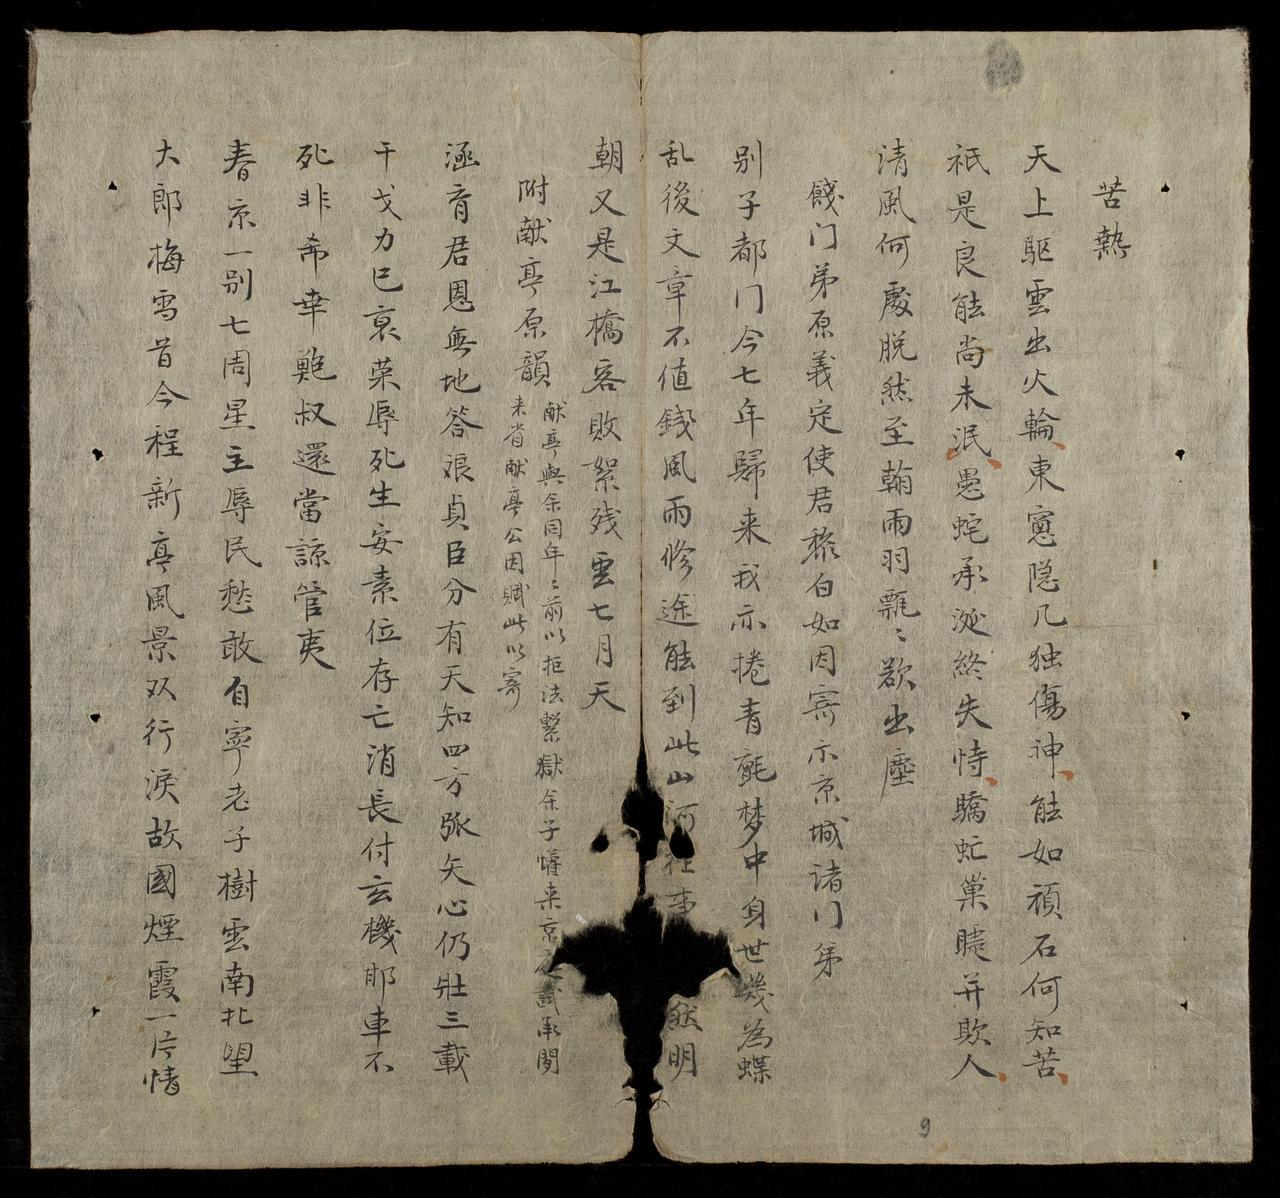 苦熱
天上駆雲出火輪東窓隐几独傷神能如頑石何知苦
祇是良能尚未泯愚蛇承涎終失恃驕虻巢睫并欺人
清風何處脱然至翰雨羽飄〻欲出塵
餞门弟原義定使君
因寄示京城諸门弟
别子都门今七年歸来我亦捲青氈梦中身世幾為蝶
乱後文章不值錢風雨修途能到此山河
然明
朝又是江橋客敗絮残雲七月天
附献亭原韻
献亭與余同年〻前以拒法繫獄余子
来京
承聞
来省献亭公因赋此以寄
涵育君恩無地答娘貞臣分有天知四方弧矢心仍壯三載
干戈力已衰荣辱死生安素位存亡消長付玄機耶車不
死非希幸鲍叔還當諒管夷
春京一别七周星主辱民愁敢自寧老子樹雲南北望
大郎梅雪首今程新亭風景双行淚故國煙霞一片情
9